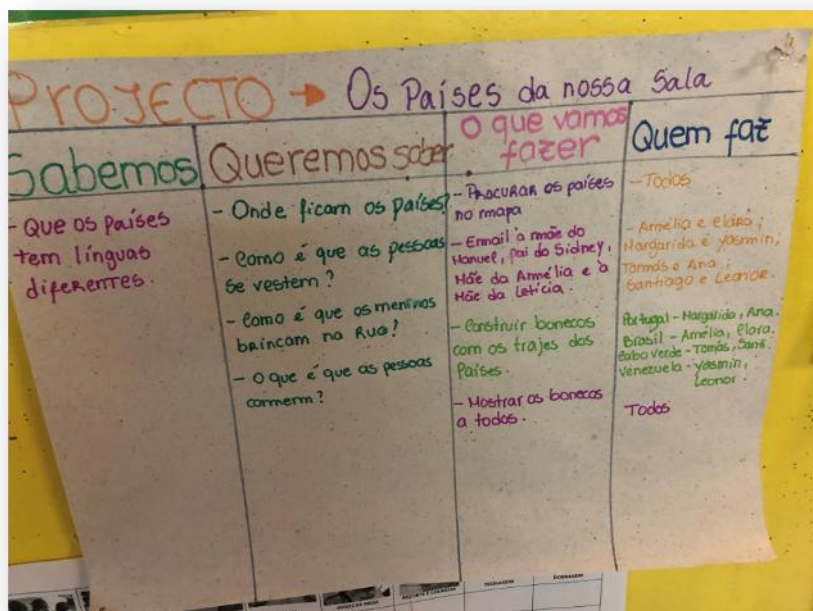 PROJECTO → Os Países da nossa Sala
Sabemos
- Que os países
tem línguas
diferentes.
Queremos saber
- Onde ficam os países?
- Como é que as pessoas
se vestem?
- Como é que os meninos
brincam na Rua?
- O que é que as pessoas
comem?
O que vamos
fazer
- Procurar os países
no mapa
- Email à mãe do
Manuel, pai do Sidney,
Mãe da Amélia e à
Mãe da Letícia.
- Construir bonecos
com os trajes dos
Países.
- Mostrar os bonecos
a todos.
Quem faz
- Todos
- Amélia e Clara;
Margarida e Yasmin;
Tomás e Ana;
Santiago e Leonor.
Portugal - Margarida, Ana.
Brasil - Amélia, Clara.
Cabo Verde - Tomás, Santi.
Venezuela - Yasmin,
Leonor.
Todos